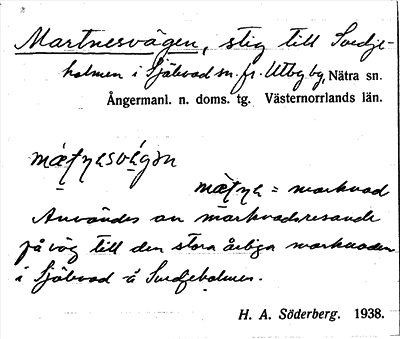 Martnesvägen, stig till Svedje-
holmen i Själevad sn. fr. Utby by, Nätra sn.
Ångermanl. n. doms. tg. Västernorrlands län.
= marknad
Användes av marknadsresande
på väg till den stora årliga marknaden
i Själevad å Svedjeholmen.
H. A. Söderberg. 1938.